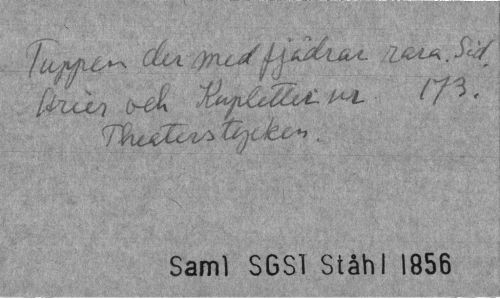 Tuppen der med fjädrar rara. Sid.
Arier och Kupletter ur 173.
Theaterstycken.
Saml SGS1 Ståhl 1856